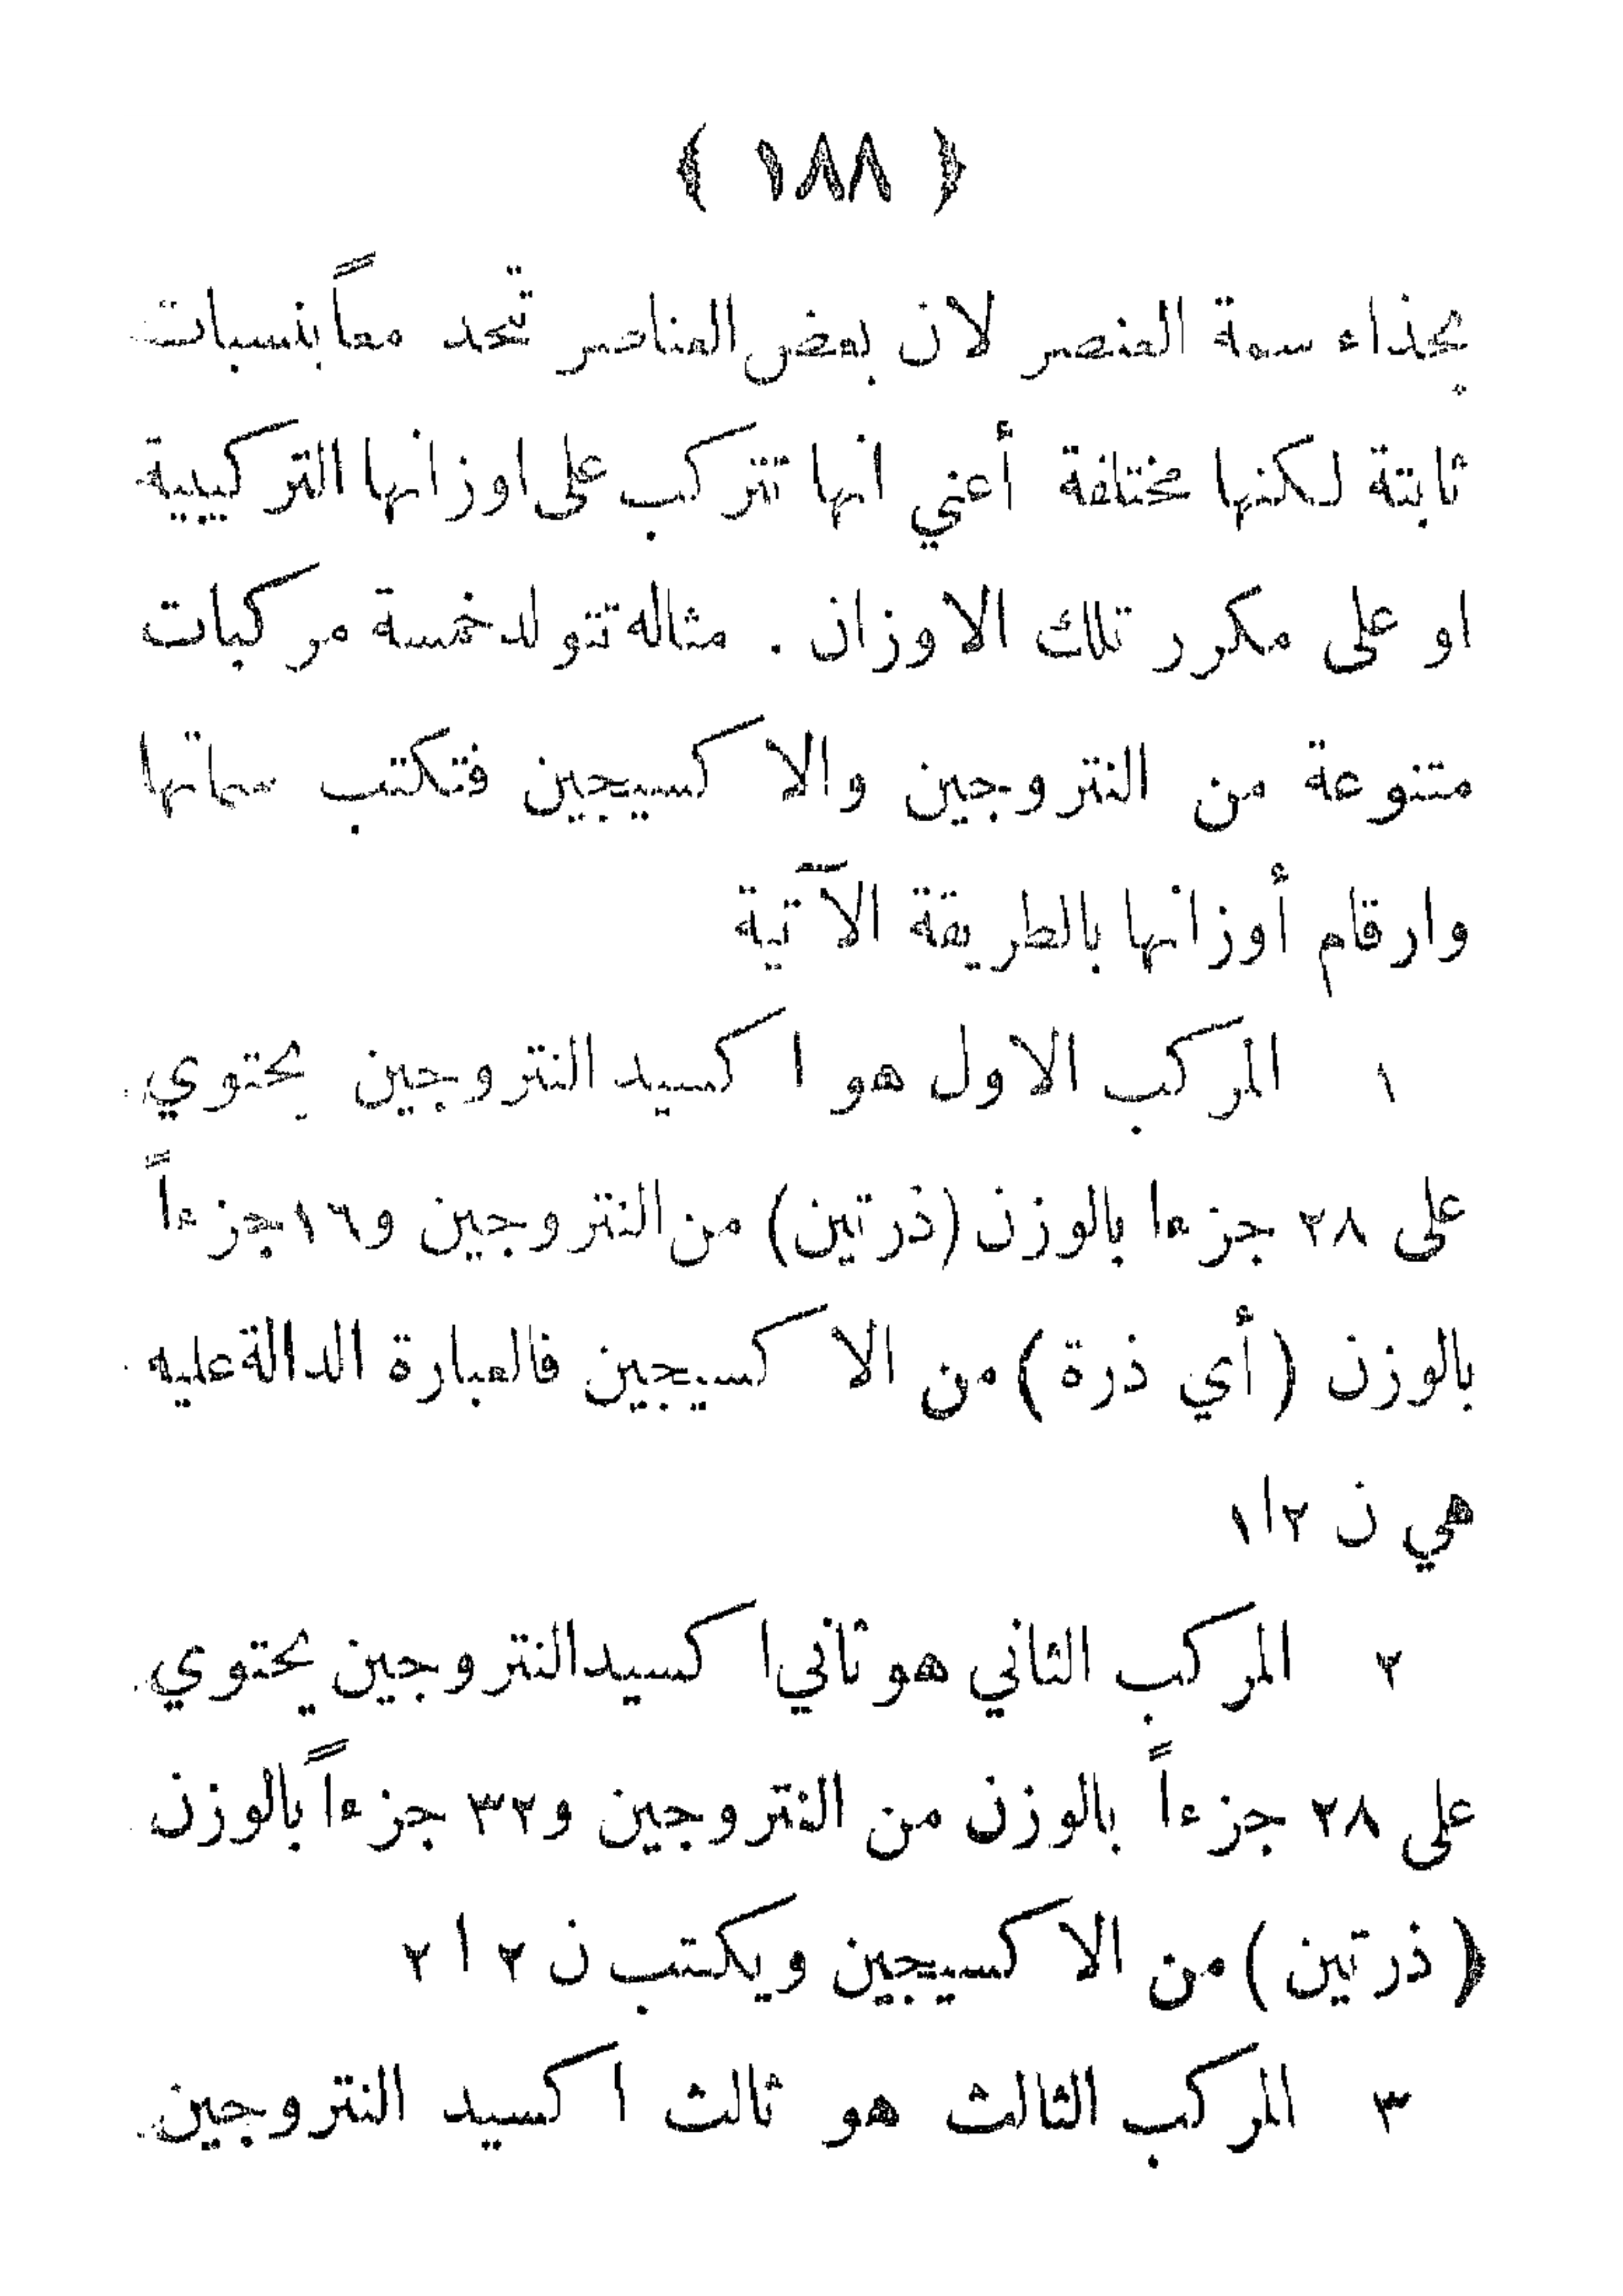 ﴿ ١٨٨ ﴾
بحذاء سمة العنصر لان بعض العناصر تتحد معاً بنسبات
ثابتة لكنها مختلفة أعني انها تتركب على اوزانها التركيبية
او على مكرر تلك الاوزان . مثاله تتولد خمسة مركبات
متنوعة من النتروجين والاكسيجين فتكتب سماتها
وارقام أوزانها بالطريقة الآتية
١ المركب الاول هو اكسيد النتروجين يحتوي
على ٢٨ جزءا بالوزن (ذرتين) من النتروجين و١٦ جزءاً
بالوزن (أي ذرة) من الاكسيجين فالعبارة الدالة عليه
هي ن ٢ا١
٢ المركب الثاني هو ثاني اكسيد النتروجين يحتوي
على ٢٨ جزءاً بالوزن من النتروجين و٣٢ جزءاً بالوزن
(ذرتين) من الاكسيجين ويكتب ن ٢ ا ٢
٣ المركب الثالث هو ثالث اكسيد النتروجين